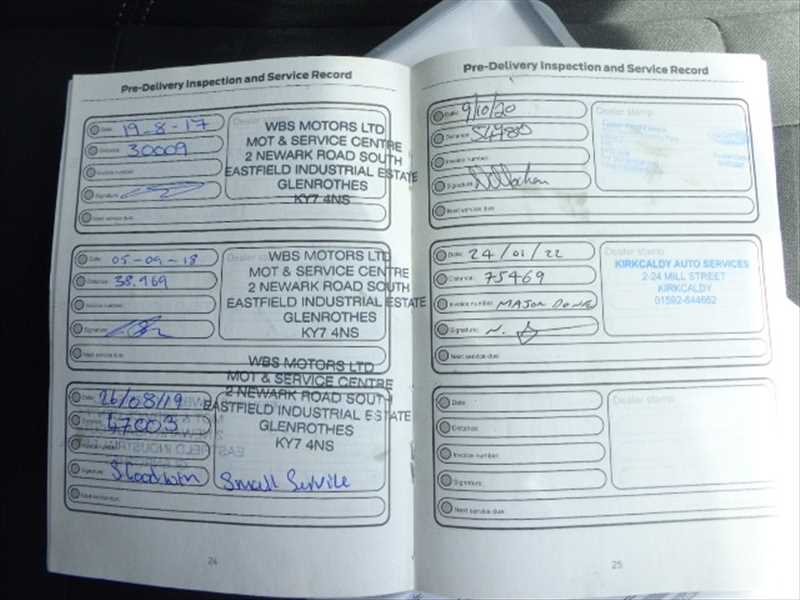 Pre-Delivery Inspection and Service Record
Date: 19-8-17
Distance: 30009
Invoice number:
Signature:
Next service due:
Dealer stamp
WBS MOTORS LTD
MOT & SERVICE CENTRE
2 NEWARK ROAD SOUTH
EASTFIELD INDUSTRIAL ESTATE
GLENROTHES
KY7 4NS
Date: 05-09-18
Distance: 38.969
Invoice number:
Signature:
Next service due:
Dealer stamp
WBS MOTORS LTD
MOT & SERVICE CENTRE
2 NEWARK ROAD SOUTH
EASTFIELD INDUSTRIAL ESTATE
GLENROTHES
KY7 4NS
Date: 26/08/19
47003
Signature: SGoodwin
WBS MOTORS LTD
MOT & SERVICE CENTRE
2 NEWARK ROAD SOUTH
EASTFIELD INDUSTRIAL ESTATE
GLENROTHES
KY7 4NS
Small Service
24
Pre-Delivery Inspection and Service Record
Date: 9/10/20
Distance:
Invoice number:
Signature:
Next service due:
Dealer stamp
Date: 24/01/22
Distance: 75469
Invoice number: MAJOR DONE
Signature:
Next service due:
Dealer stamp
KIRKCALDY AUTO SERVICES
2-24 MILL STREET
KIRKCALDY
01592-644662
Date:
Distance:
Invoice number:
Signature:
Next service due:
Dealer stamp
25